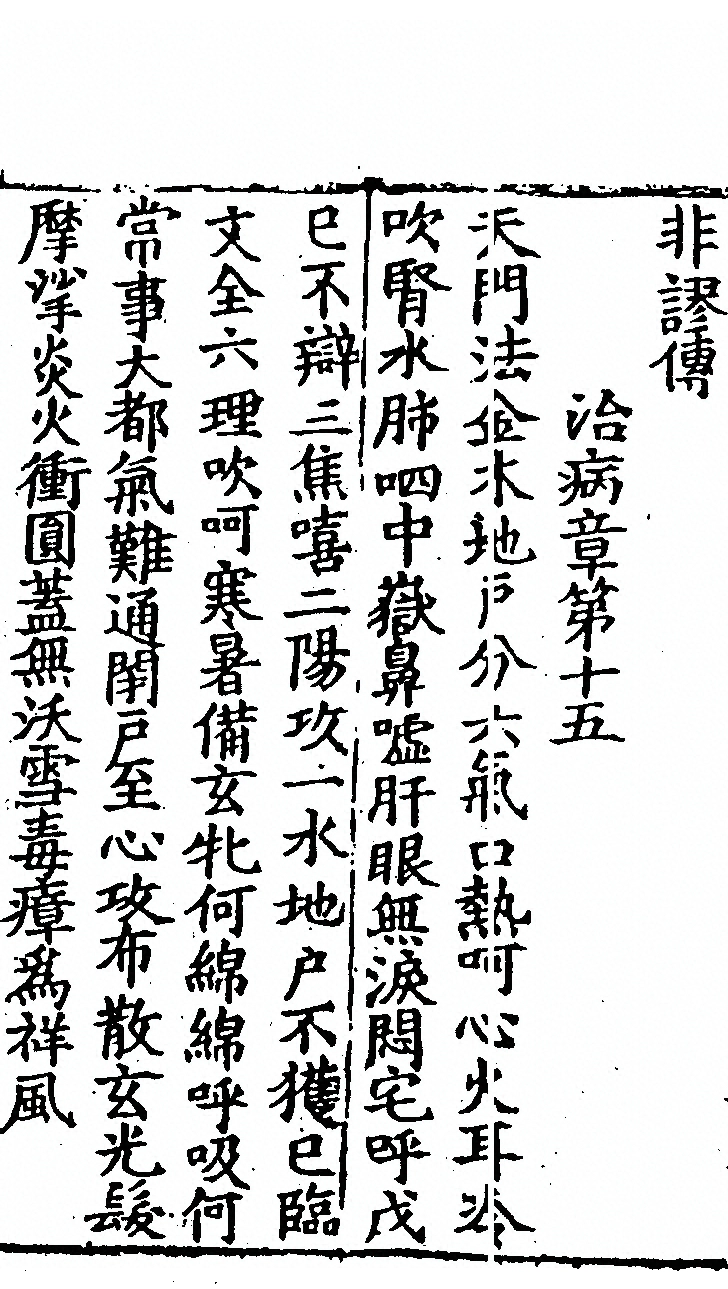 非謬傳
治病章第十五
天門法金水地戶分六氣口熱呵心火耳冷
吹腎水肺呬中嶽鼻噓肝眼無淚悶宅呼戊
巳不辯三焦嘻二陽攻一水地户不獲巳臨
文全六理吹呵寒暑備玄牝何綿綿呼吸何
常事大都氣難通閉戸至心攻布散玄光髮
摩挲炎火衝圓蓋無沃雪毒瘴為祥風